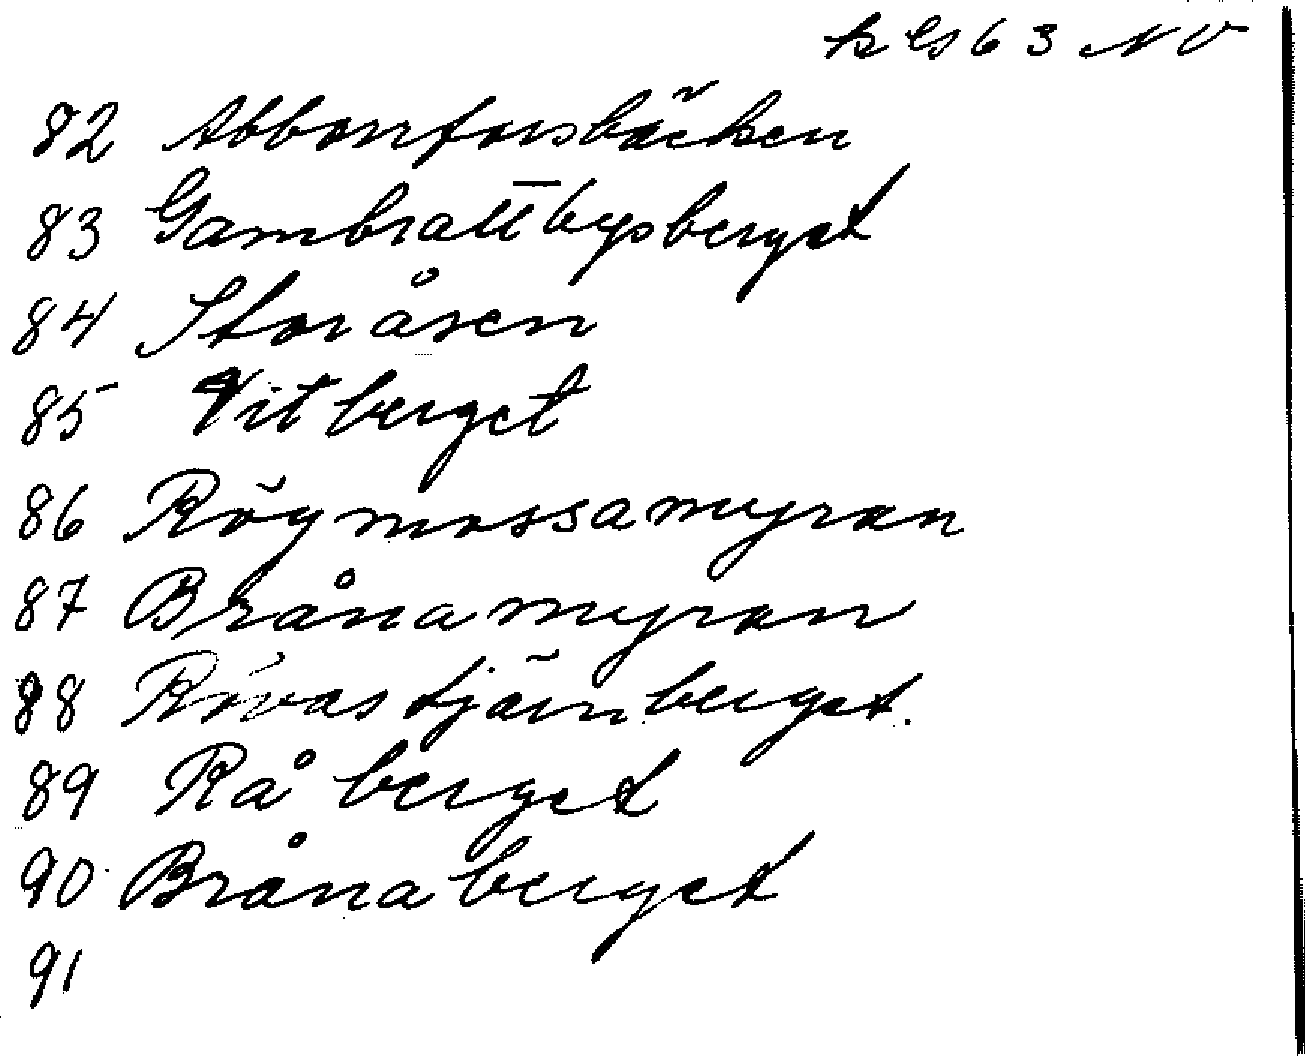 63 NV
82 Abborrforsbäcken
83 Gambrattbysberget
84 Storåsen
85 Vitberget
86 Rögmossamyran
87 Brånamyran
88 Rövastjärnberget.
89 Råberget
90 Brånaberget
91